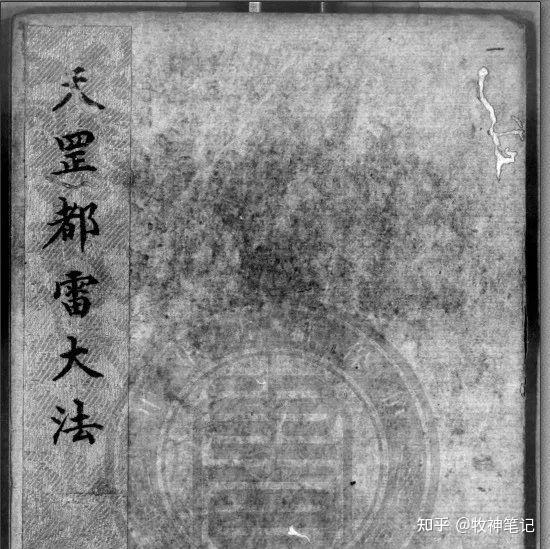 天罡都雷大法
知乎 @牧神笔记